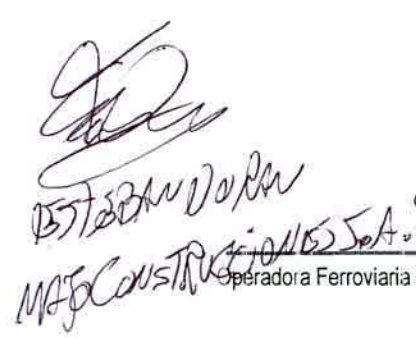 ESTEBAN DORAN
MAJO CONSTRUCCIONES S.A.
Operadora Ferroviaria